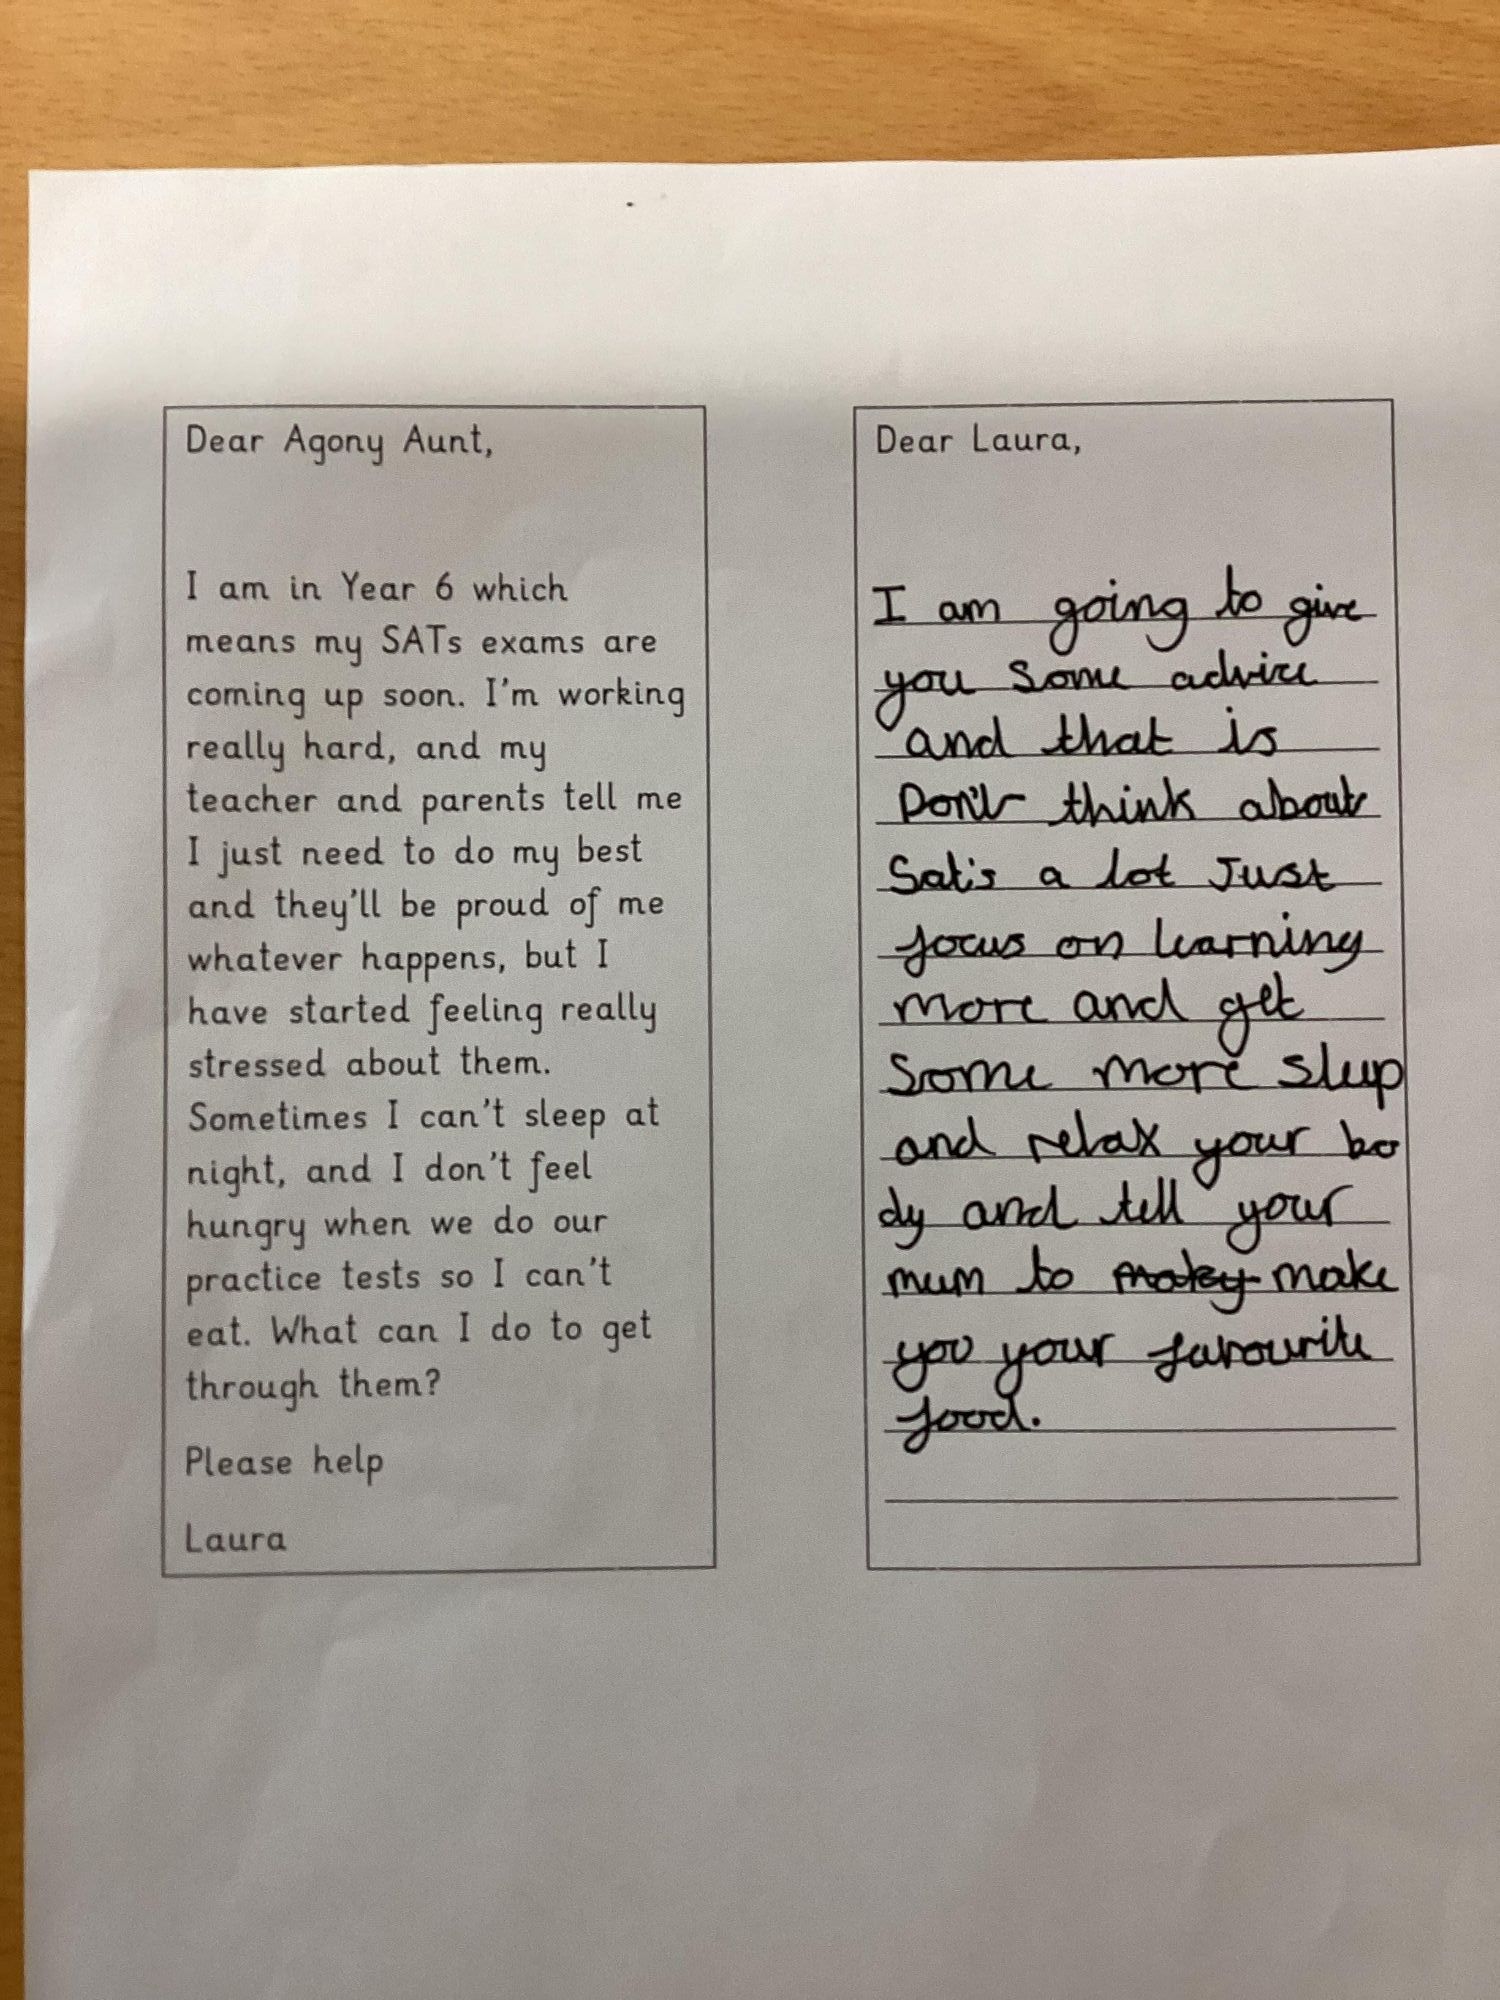 Dear Agony Aunt,
I am in Year 6 which
means my SATs exams are
coming up soon. I'm working
really hard, and my
teacher and parents tell me
I just need to do my best
and they'll be proud of me
whatever happens, but I
have started feeling really
stressed about them.
Sometimes I can't sleep at
night, and I don't feel
hungry when we do our
practice tests so I can't
eat. What can I do to get
through them?
Please help
Laura
Dear Laura,
I am going to give
you some advice
and that is
Don't think about
Sat's a lot Just
focus on learning
more and get
some more sleep
and relax your bo
dy and tell your
mum to make
you your favourite
food.